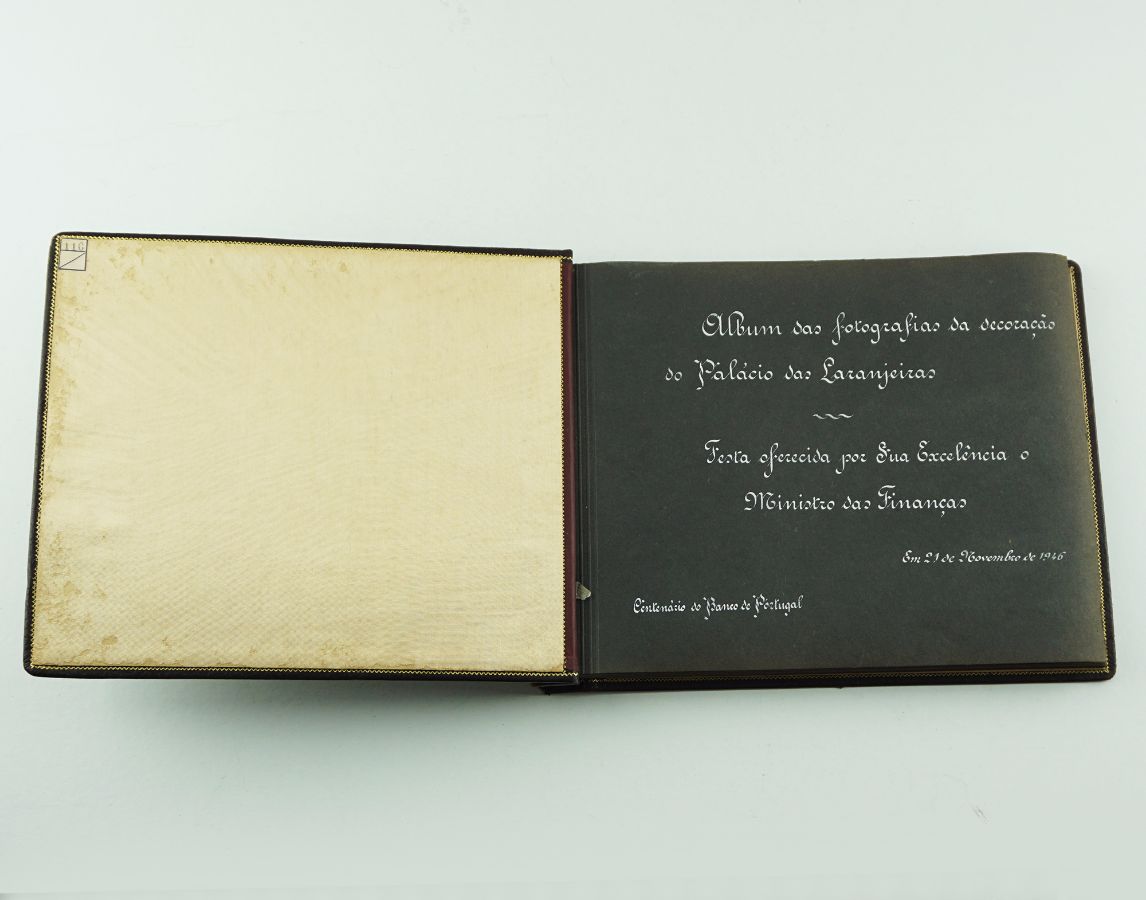 11G
Album das fotografias da decoração
do Palácio das Laranjeiras
Festa oferecida por Sua Excelência o
Ministro das Finanças
Em 21 de Novembro de 1946
Centenário do Banco de Portugal